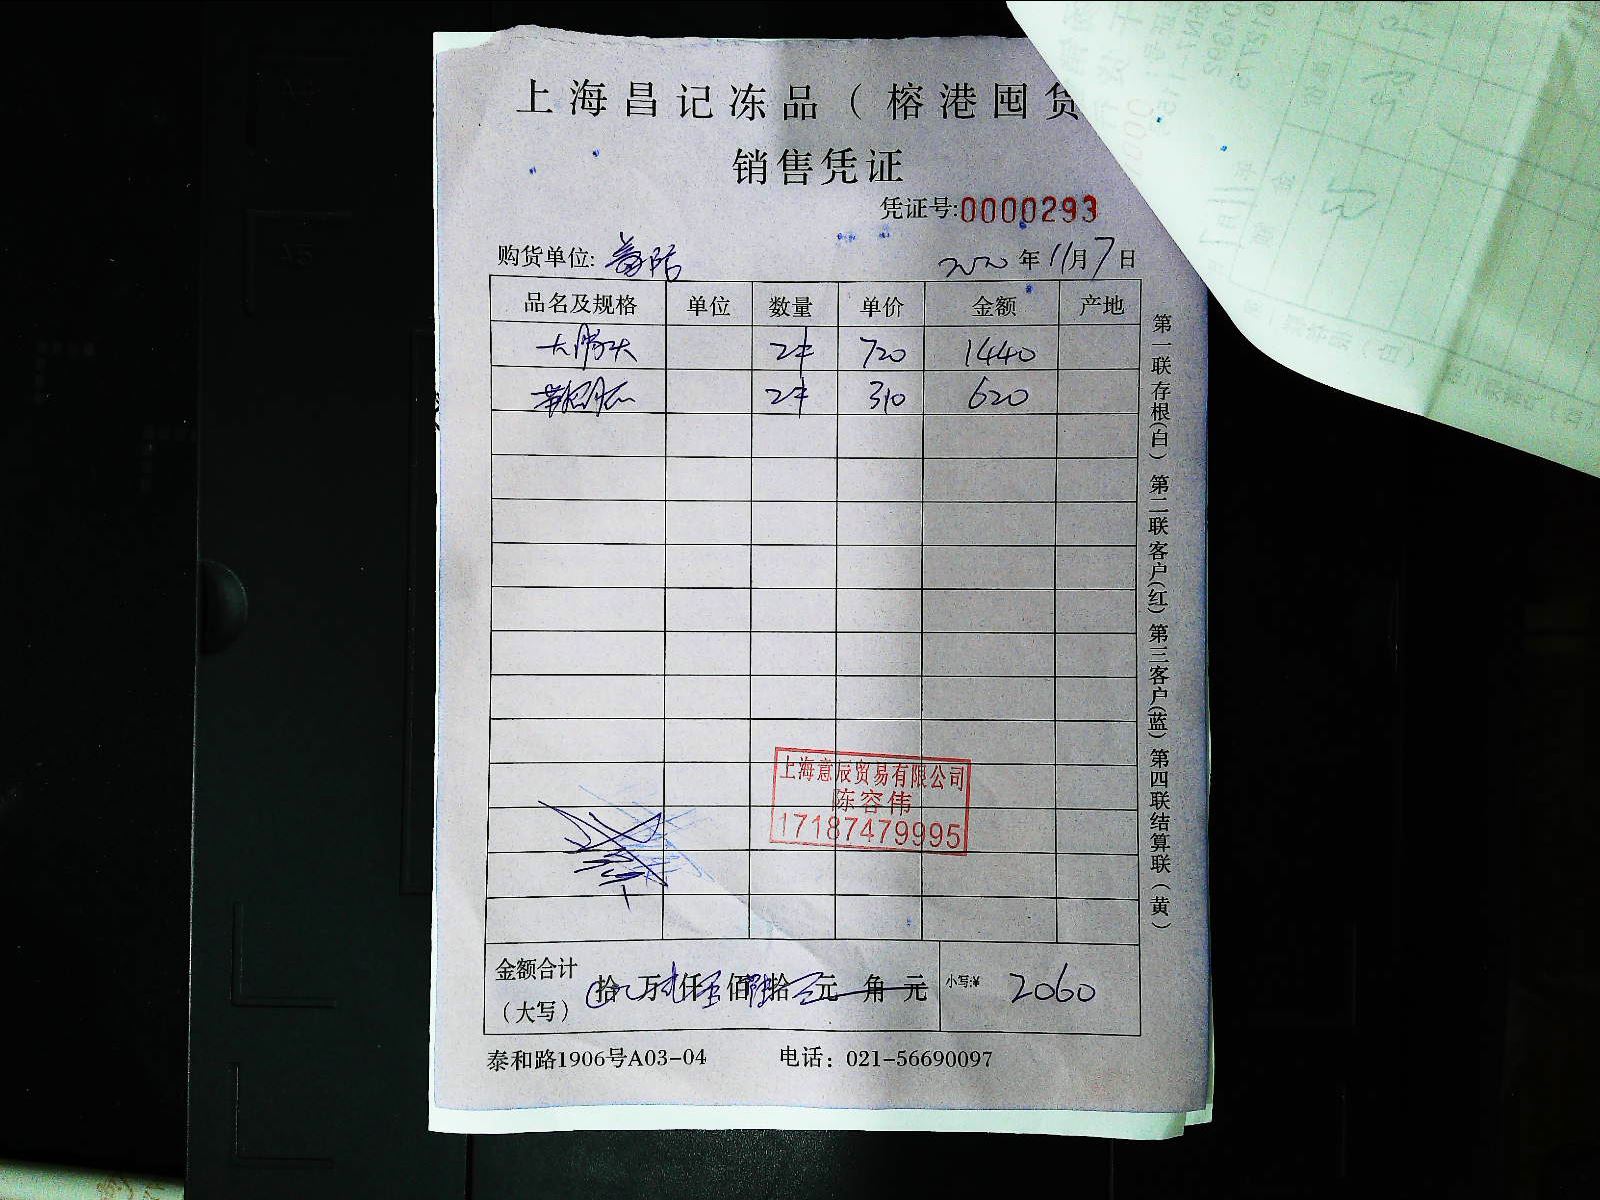 上海昌记冻品（榕港囤货
销售凭证
凭证号:0000293
购货单位:
2020年11月7日
品名及规格 单位 数量 单价 金额 产地
2件 720 1440
2件 310 620
上海意辰贸易有限公司
陈容伟
17187479995
金额合计（大写） 拾 万 仟 佰 拾 元 角 元 小写:¥ 2060
泰和路1906号A03-04 电话：021-56690097
第一联存根(白) 第二联客户(红) 第三客户(蓝) 第四联结算联（黄）